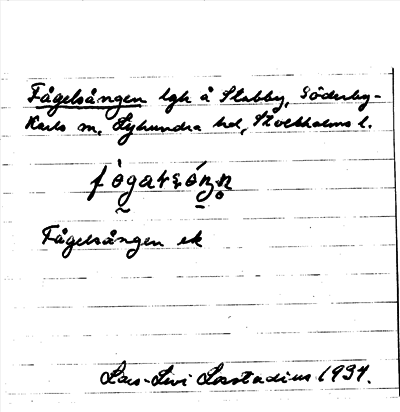 Fågelsången lgh å Stabby, Söderby-
Karls sn, Lyhundra hd, Stockholms l.
Fågelsången ek
Lars-Levi Læstadius 1934.